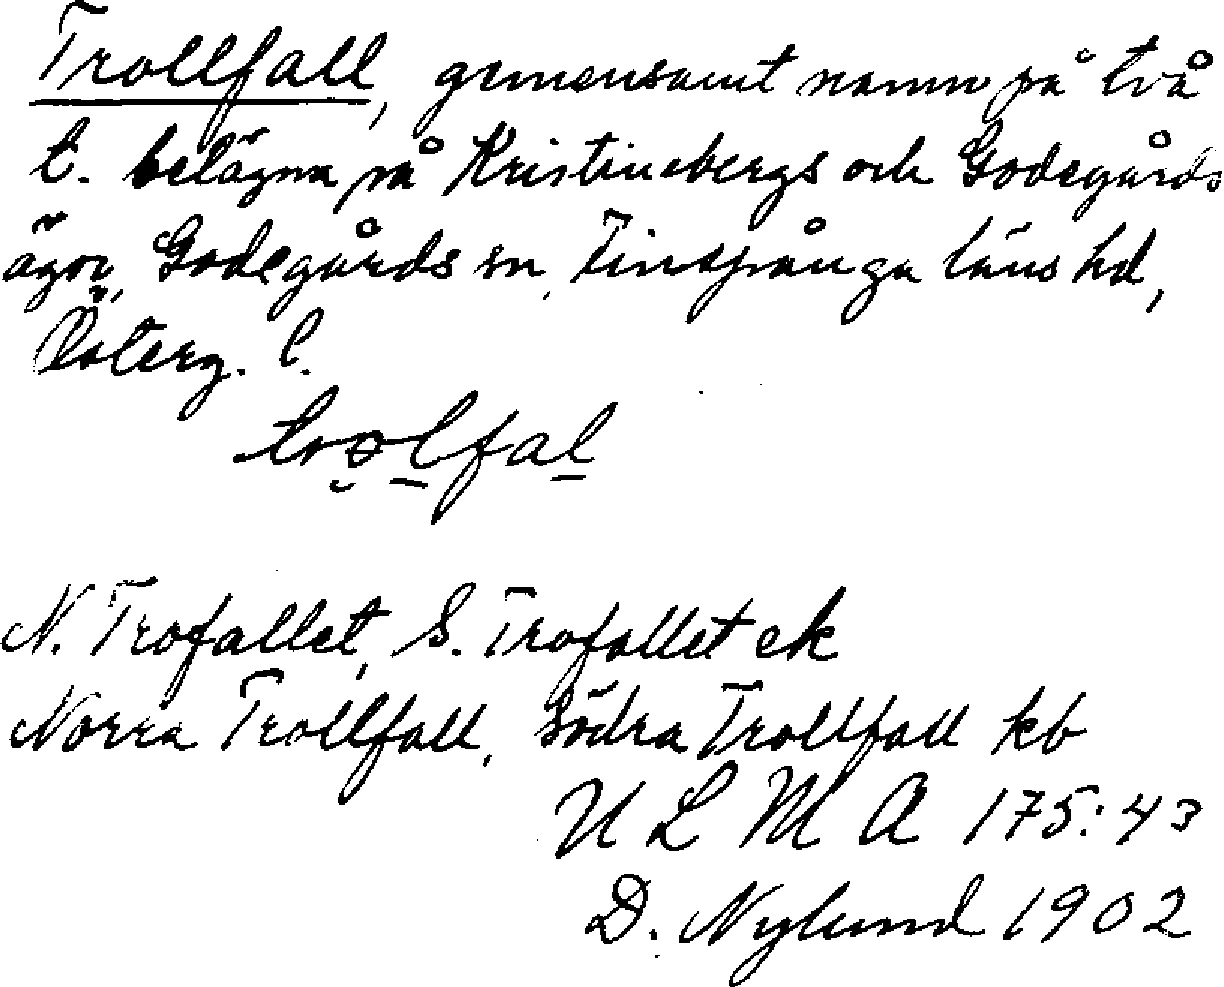 Trollfall, gemensamt namn på två
t. belägna på Kristinebergs och Godegårds
ägor, Godegårds sn, Finspånga läns hd,
Österg. l.
trolfal
N. Trofallet, S. Trofallet ek
Norra Trollfall, Södra Trollfall kb
U L M A 175:43
D. Nylund 1902